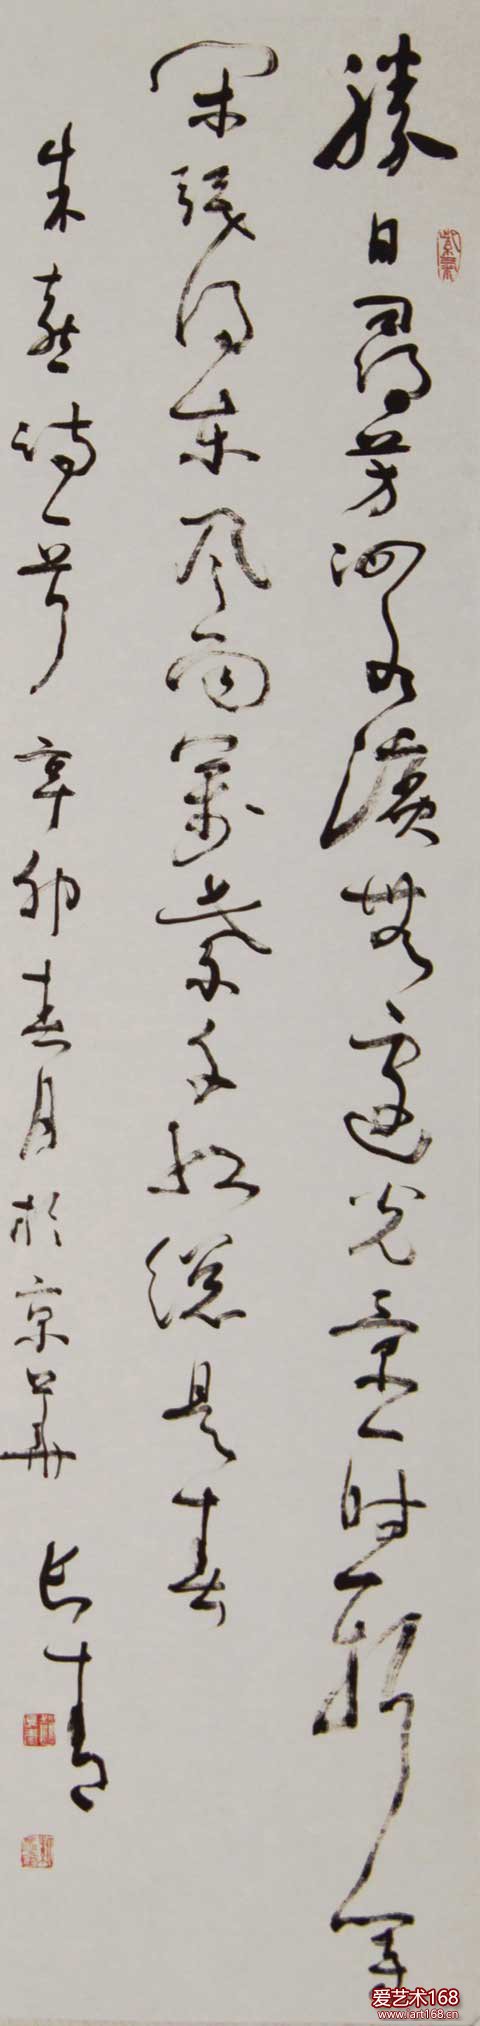 勝日尋芳泗水濱無邊光景一時新等
閑識得東風面萬紫千紅總是春
朱熹詩一首 辛卯春月於京華 長青
爱艺术168
www.iart168.cn